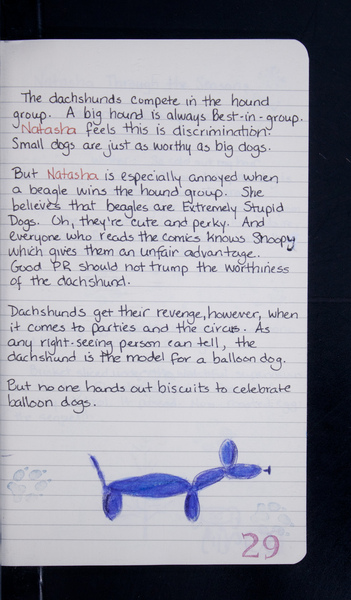 The dachshunds compete in the hound
group. A big hound is always Best-in-group.
Natasha feels this is discrimination.
Small dogs are just as worthy as big dogs.
But Natasha is especially annoyed when
a beagle wins the hound group. She
believes that beagles are Extremely Stupid
Dogs. Oh, they're cute and perky. And
everyone who reads the comics knows Snoopy
which gives them an unfair advantage.
Good PR should not trump the worthiness
of the dachshund.
Dachshunds get their revenge, however, when
it comes to parties and the circus. As
any right-seeing person can tell, the
dachshund is the model for a balloon dog.
But no one hands out biscuits to celebrate
balloon dogs.
29